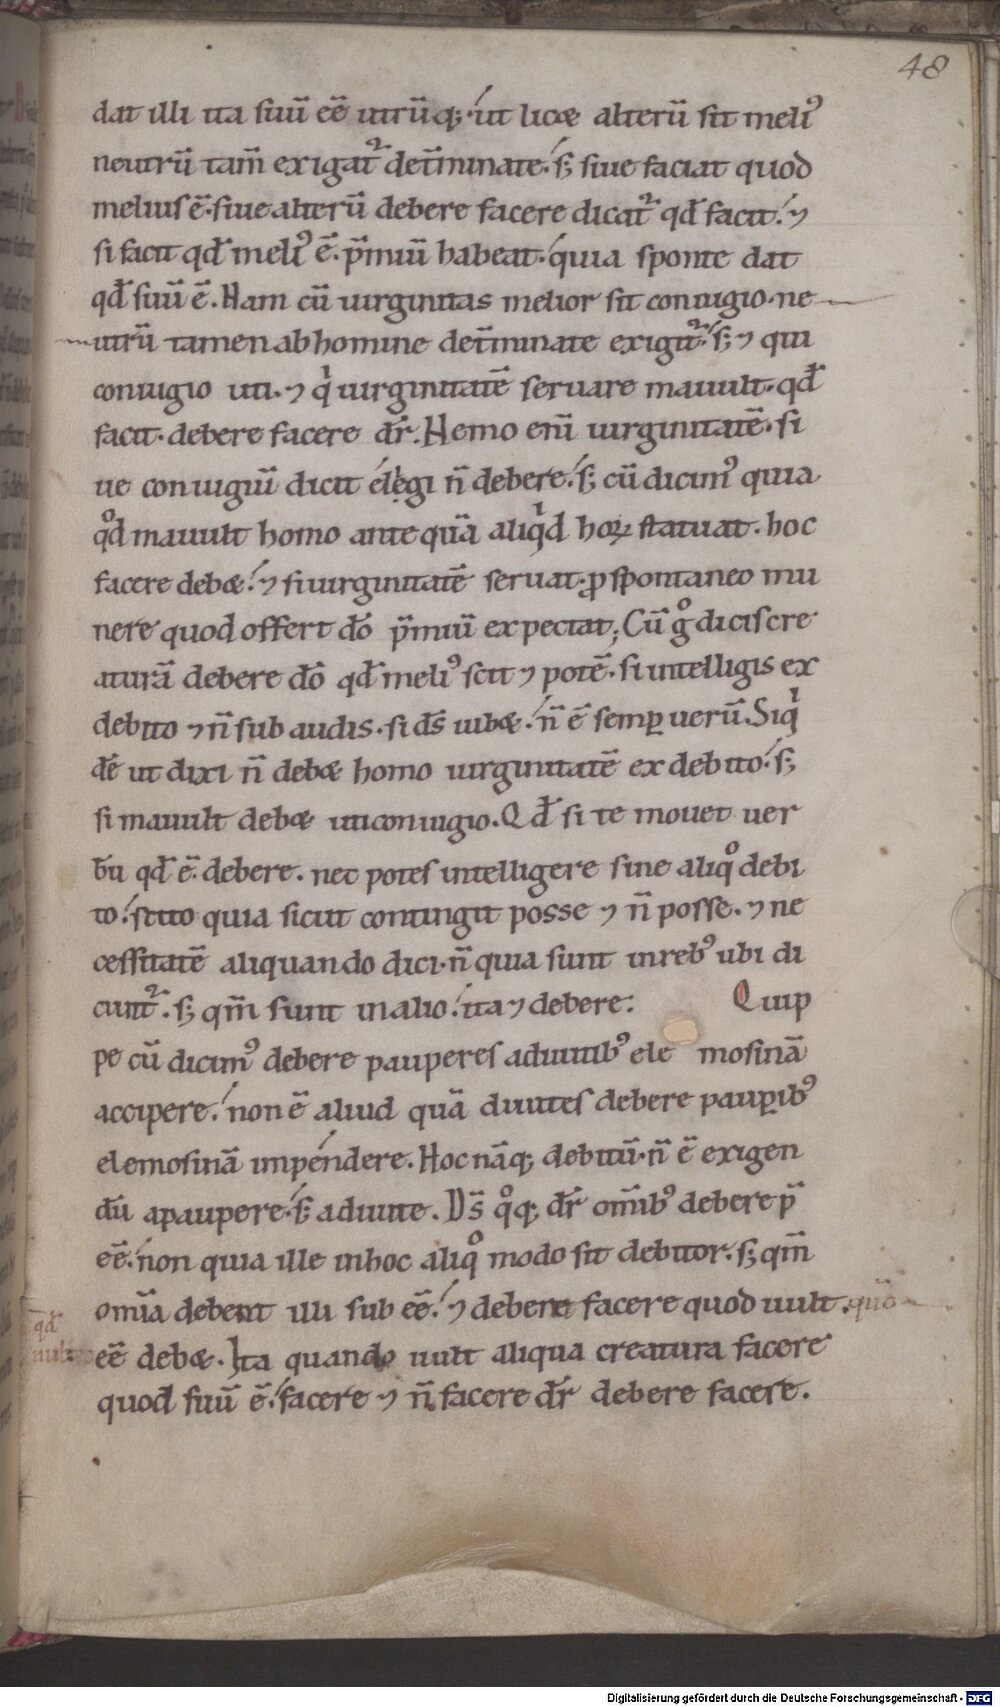 48
dat illi ita suū eē utrūq; ut licæ alterū sit meli᾽
neutrū tam̄ exigat᷑ det̄minate. s; siue faciat quod
melius ē. siue alterū debere facere dicat᷑ qđ facit. ⁊
si facit qđ meli᾽ ē. p̄miū habeat. quia sponte dat
qđ suū ē. Nam cū uirginitas melior sit coniugio. ne
utrū tamen ab homine det̄minate exigit᷑. s; ⁊ qui
coniugio uti. ⁊ qͥ uirginitatē seruare mauult. qđ
facit. debere facere dr̄. Nemo enī uirginitatē. si
ue coniugiū dicit elegi n̄ debere. s; cū dicim᾽ quia
qͦd mauult homo ante quā aliqͥd hoꝝ statuat. hoc
facere debæ. ⁊ si uirginitatē seruat. ꝓ spontaneo mu
nere quod offert dō p̄miū expectat; Cū gͦ dicis cre
aturā debere dō qđ meli᾽ scit ⁊ potē. si intelligis ex
debito ⁊ n̄ sub audis. si ds̄ iubæ. n̄ ē semꝑ uerū. Siqͥ
dē ut dixi n̄ debæ homo uirginitatē ex debito. s;
si mauult debæ uti coniugio. Qđ si te mouet uer
bū qđ ē. debere. nec potes intelligere sine aliqͦ debi
to. scito quia sicut contingit posse ⁊ n̄ posse. ⁊ ne
cessitatē aliquando dici. n̄ quia sunt in reb᾽ ubi di
cunt᷑. s; qm̄ sunt in alio. ita ⁊ debere. Quip
pe cū dicim᾽ debere pauperes a diuitib᾽ ele mosinā
accipere. non ē aliud quā diuites debere pauꝑib᾽
elemosinā impendere. Hoc nāq; debitū. n̄ ē exigen
dū a paupere. s; a diuite. Ds̄ qͦq; dr̄ om̄ib᾽ debere p̄
eē. non quia ille in hoc aliqͦ modo sit debitor. s; qm̄
omīa debent illi sub eē. ⁊ debere facere quod uult. qūo
qđ
uult
eē debæ. Ita quando uult aliqua creatura facere
quod suū ē. facere ⁊ n̄ facere dr̄ debere facere.
Digitalisierung gefördert durch die Deutsche Forschungsgemeinschaft - DFG